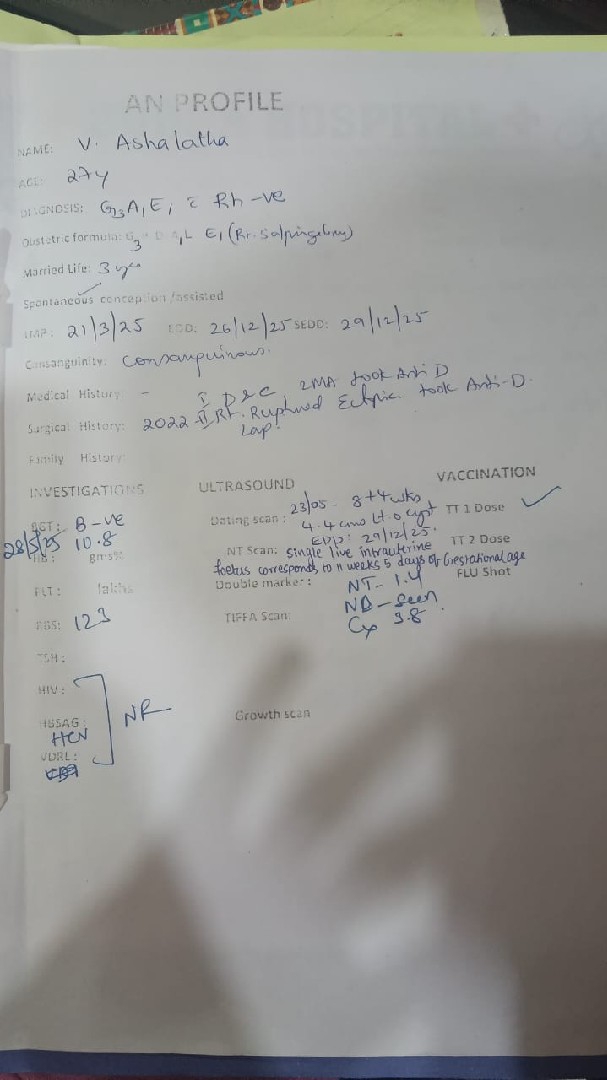 AN PROFILE
NAME: V. Ashalatha
AGE: 27y
DIAGNOSIS: G3A1E1 c̄ Rh -ve
Obstetric formula: G3 A1L E1 (Rt. Salpingectomy)
Married Life: 3 yrs
Spontaneous conception /assisted
LMP: 21/3/25 EDD: 26/12/25 SEDD: 29/12/25
Consanguinity: Consanguinous.
Medical History -
I D&C 2MA took Anti D
Surgical History: 2022 - II Rt. Ruptured Ectpic took Anti-D.
Lap.
Family History:
INVESTIGATIONS ULTRASOUND VACCINATION
BGT: B -ve
Dating scan: 23/05 8+4wks TT 1 Dose
4.4 cms Lt. o cyst
EDD: 29/12/25.
28/5/25 HB: 10.8 gms%
NT Scan: Single live intrauterine TT 2 Dose
foetus corresponds to 11 weeks 5 days of Gestational age
PLT: lakhs Double marker: FLU Shot
NT - 1.4
NB - Seen
Cx 3.8
RBS: 123 TIFFA Scan:
TSH:
HIV:
HBSAG: NR
Growth scan
HCV
VDRL: